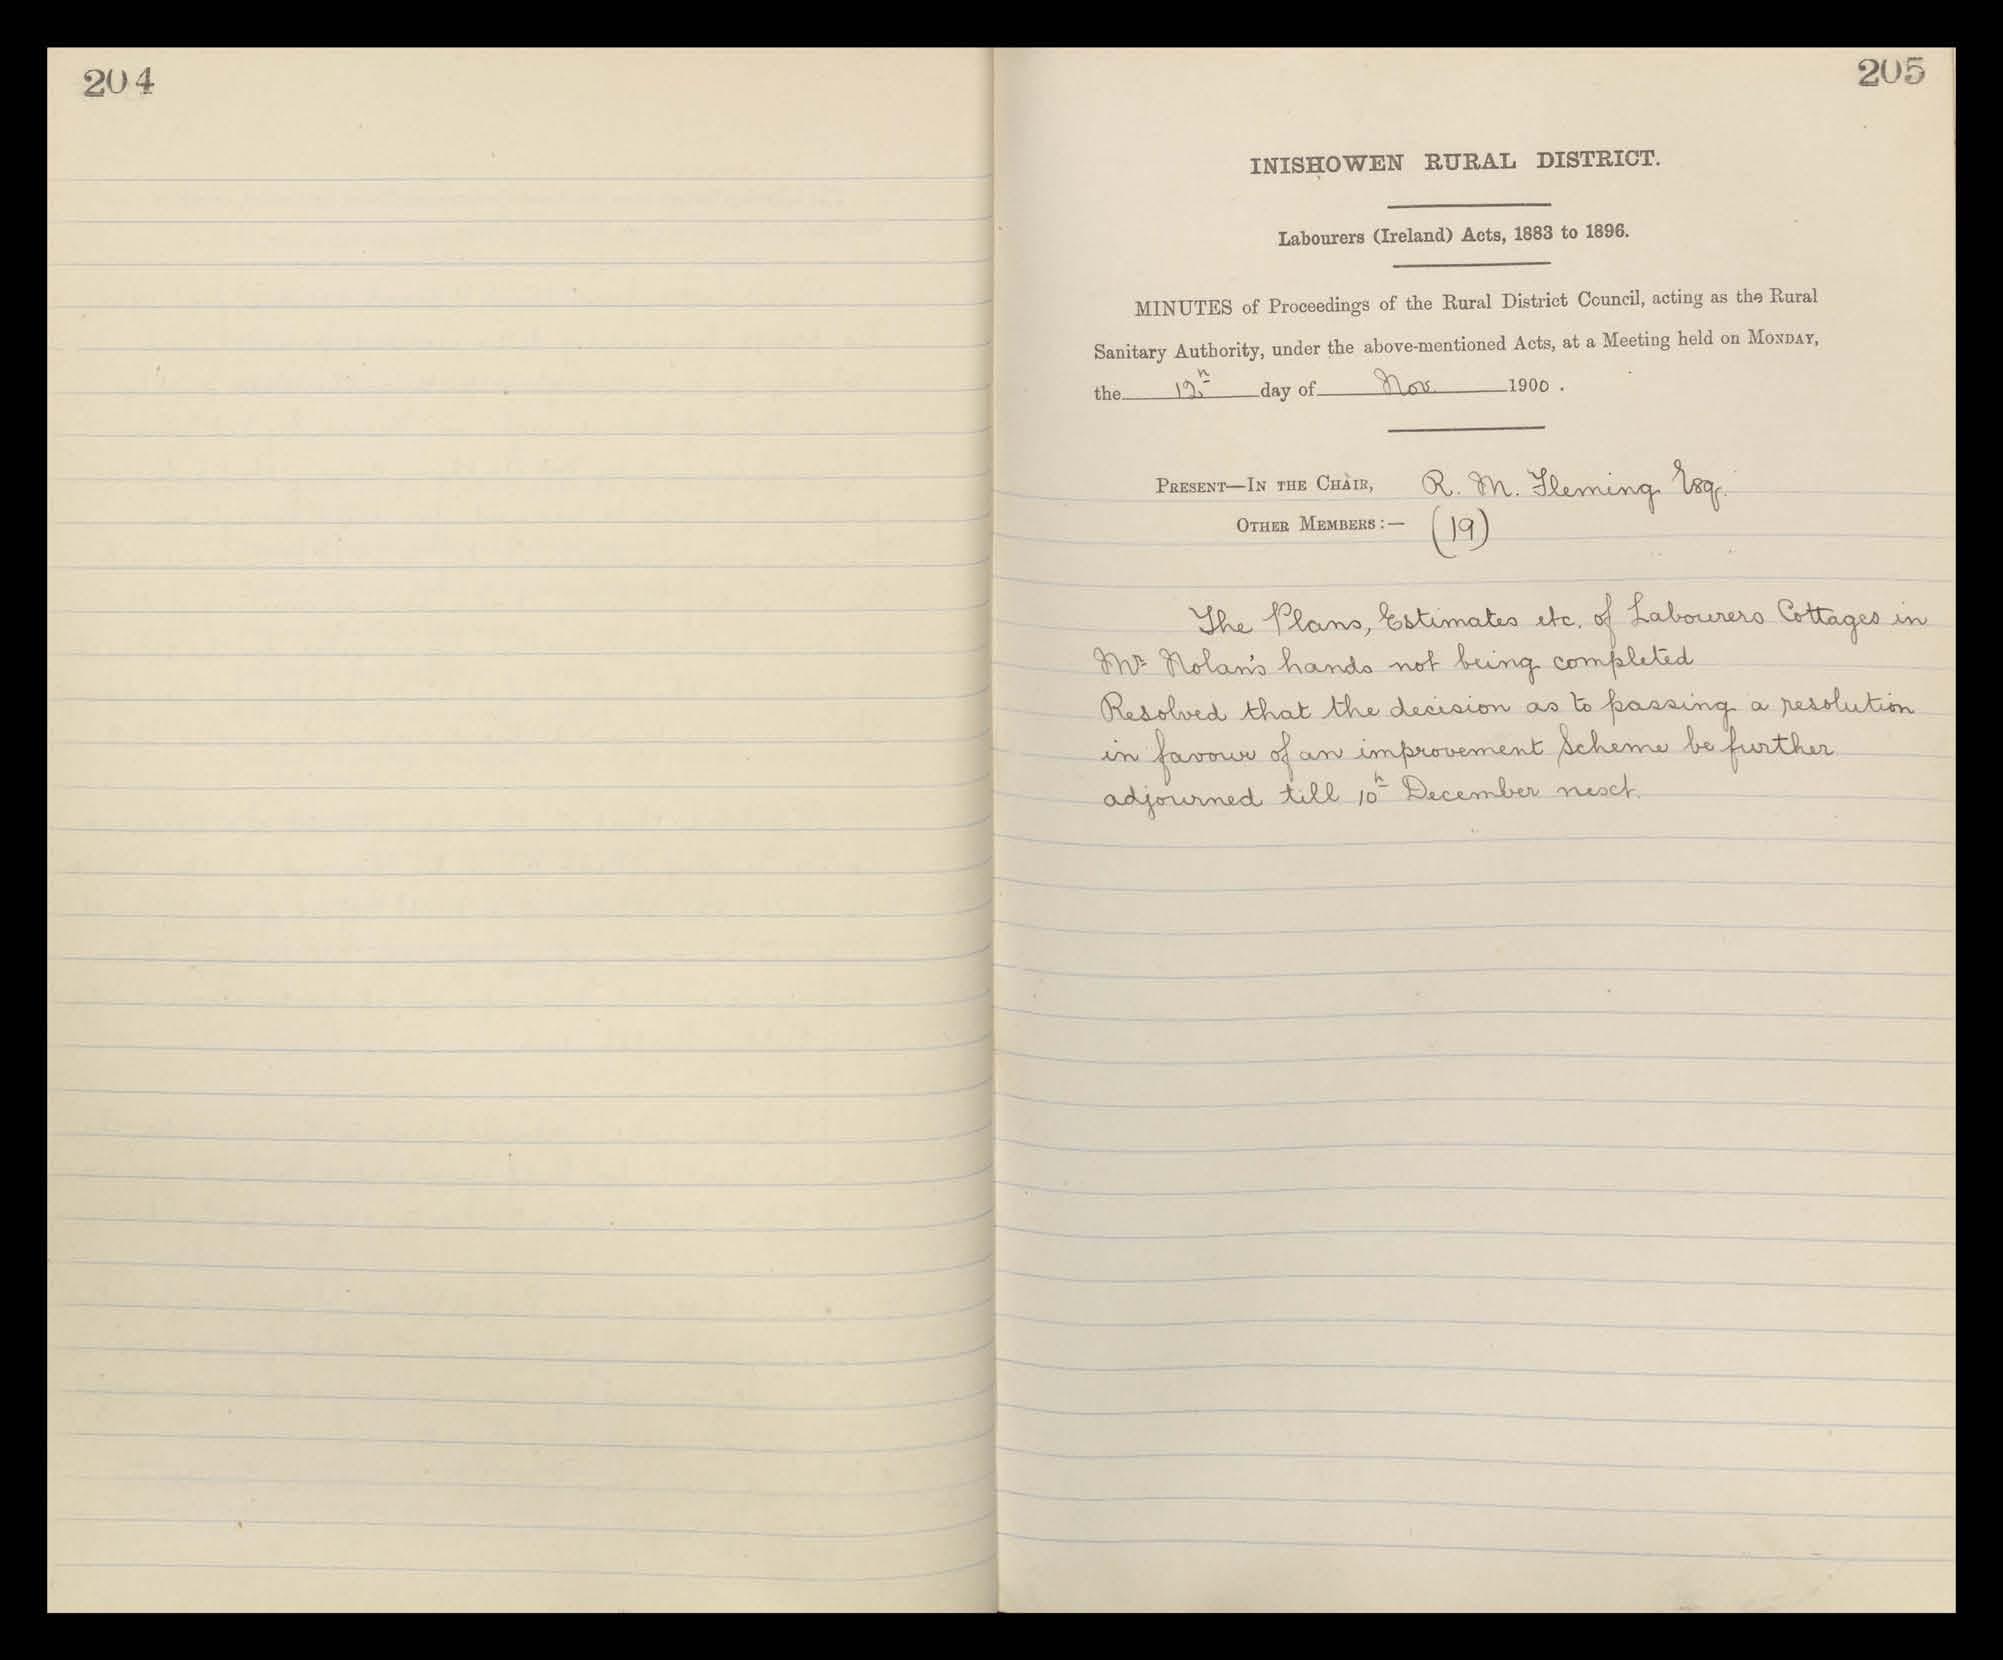 204
205
INISHOWEN RURAL DISTRICT.
Labourers (Ireland) Acts, 1883 to 1896.
MINUTES of Proceedings of the Rural District Council, acting as the Rural
Sanitary Authority, under the above-mentioned Acts, at a Meeting held on MONDAY,
the 12h day of Nov 1900 .
PRESENT—IN THE CHAIR, R. M. Fleming Esq.
OTHER MEMBERS:— (19)
The Plans, Estimates etc. of Labourers Cottages in
Mr Nolan's hands not being completed
Resolved that the decision as to passing a resolution
in favour of an improvement Scheme be further
adjourned till 10h December next.